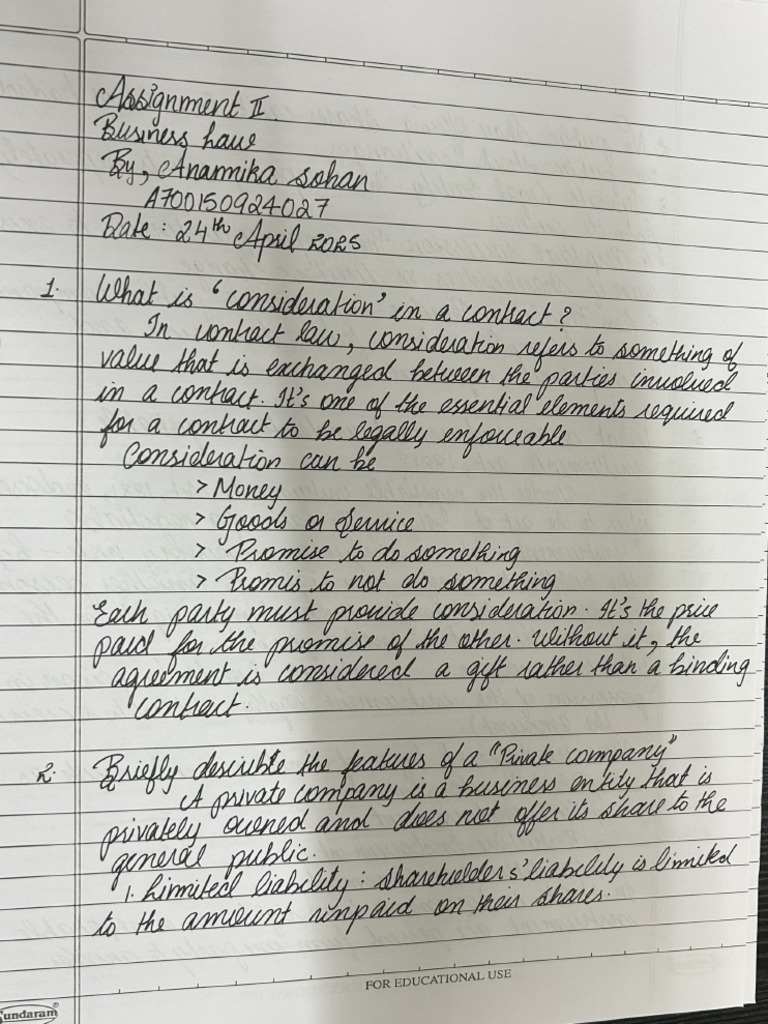 Assignment II
Business Law
By, Anamika Sohan
A700150924027
Date : 24th April 2025
1. What is 'consideration' in a contract?
In contract law, consideration refers to something of
value that is exchanged between the parties involved
in a contract. It's one of the essential elements required
for a contract to be legally enforceable
Consideration can be
> Money
> Goods or Service
> Promise to do something
> Promis to not do something
Each party must provide consideration. It's the price
paid for the promise of the other. Without it, the
agreement is considered a gift rather than a binding
contract.
2. Briefly describe the features of a "Private company"
A private company is a business entity that is
privately owned and does not offer its share to the
general public.
1. Limited liability : Shareholders' liability is limited
to the amount unpaid on their shares.
FOR EDUCATIONAL USE
Sundaram